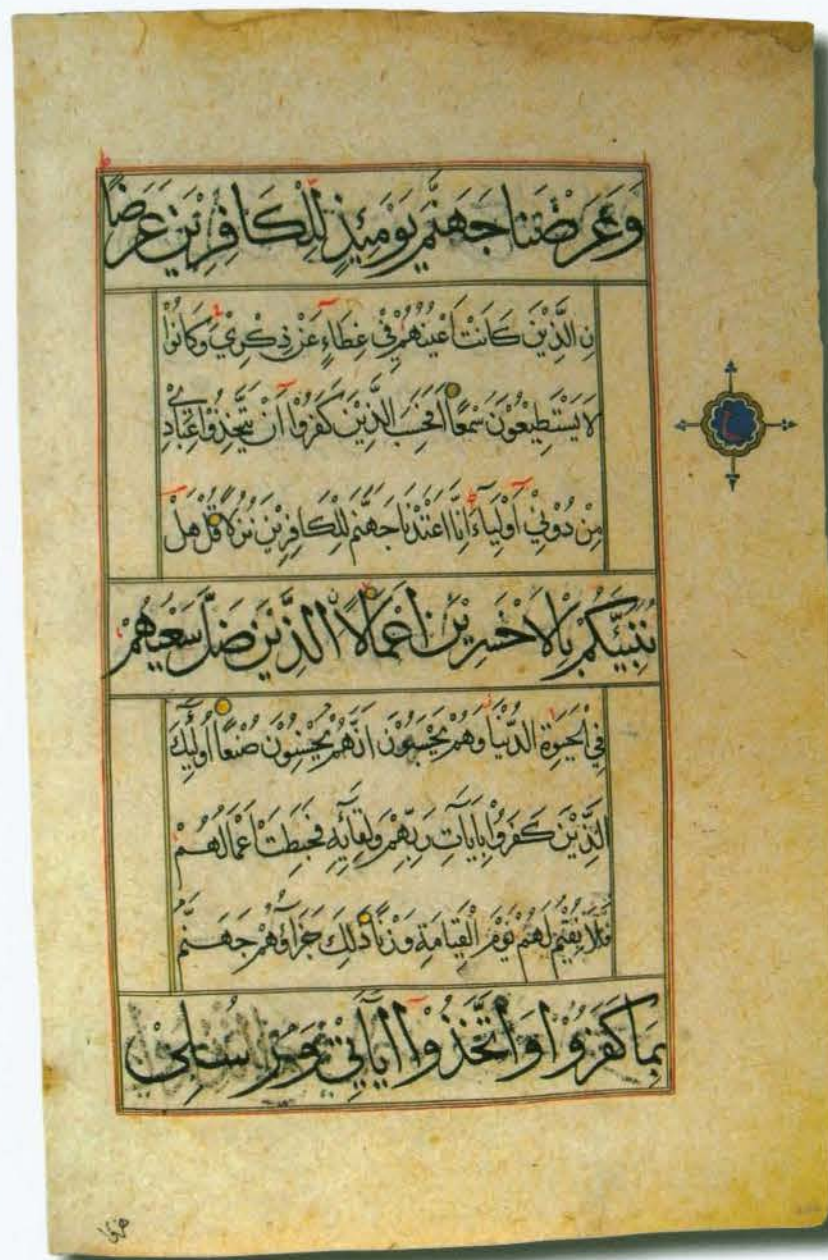 وَعَرَضْنَا جَهَنَّمَ يَوْمَئِذٍ لِلْكَافِرِيْنَ عَرْضًا
نِ الَّذِيْنَ كَانَتْ اَعْيُنُهُمْ فِيْ غِطَاءٍ عَنْ ذِكْرِيْ وَكَانُوْا
لَا يَسْتَطِيْعُوْنَ سَمْعًا اَفَحَسِبَ الَّذِيْنَ كَفَرُوْا اَنْ يَتَّخِذُوْا عِبَادِيْ
مِنْ دُوْنِيْ اَوْلِيَاءَ اِنَّا اَعْتَدْنَا جَهَنَّمَ لِلْكَافِرِيْنَ نُزُلًا قُلْ هَلْ
نُنَبِّئُكُمْ بِالْاَخْسَرِيْنَ اَعْمَالًا الَّذِيْنَ ضَلَّ سَعْيُهُمْ
فِي الْحَيٰوةِ الدُّنْيَا وَهُمْ يَحْسَبُوْنَ اَنَّهُمْ يُحْسِنُوْنَ صُنْعًا اُولٰئِكَ
الَّذِيْنَ كَفَرُوْا بِاٰيَاتِ رَبِّهِمْ وَلِقَائِهِ فَحَبِطَتْ اَعْمَالُهُمْ
فَلَا نُقِيْمُ لَهُمْ يَوْمَ الْقِيَامَةِ وَزْنًا ذٰلِكَ جَزَاؤُهُمْ جَهَنَّمُ
بِمَا كَفَرُوْا وَاتَّخَذُوْا اٰيَاتِيْ وَرُسُلِيْ
هزوا